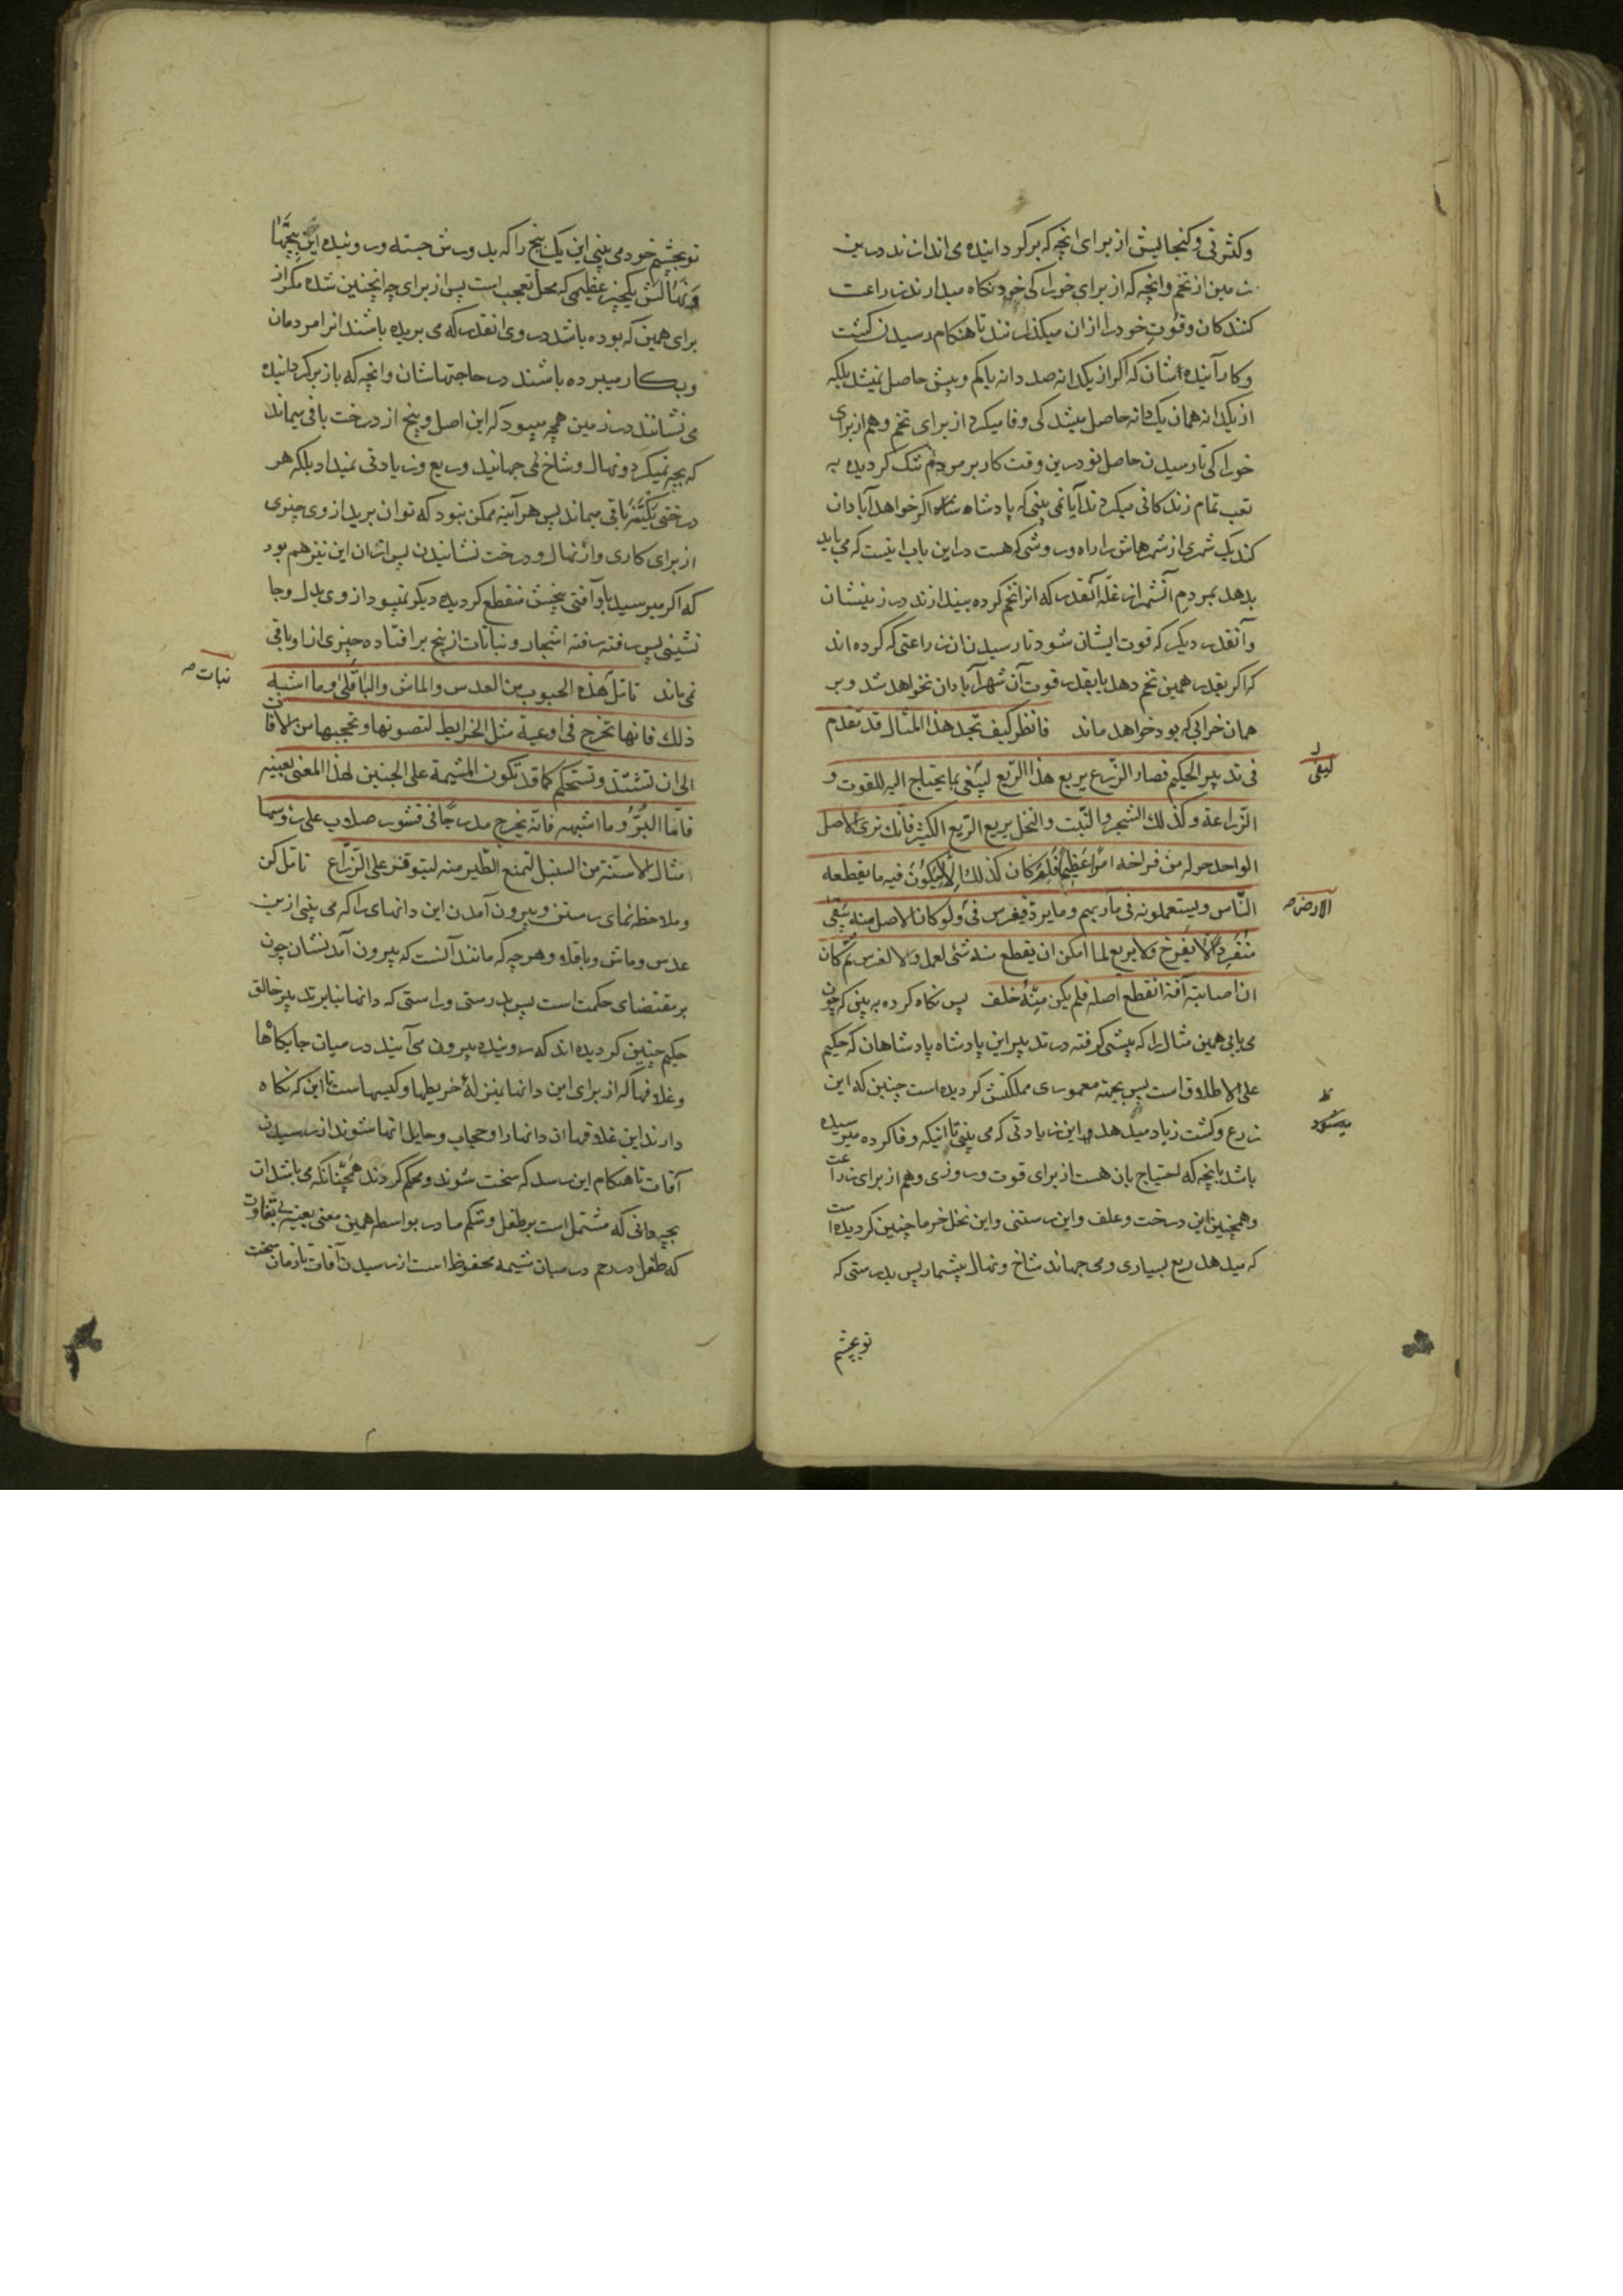 وکثرتی وکنجایش از برای انچه که برکردانیده می اندازند درین
زمین از تخم وانچه که از برای خوراکی خود نکاه میدارند زراعت
کنندکان وقوت خود را ازان میکذرانند تا هنکام رسیدن کشت
وکار آینده شان که اکر از یکدانه صد دانه یا کم وبیش حاصل نمیشد بلکه
از یکدانه همان یک دانه حاصل میشد کی وفا میکرد از برای تخم وهم از برای
خوراکی تا رسیدن حاصل نو درین وقت کار بر مردم تنک کردیده به
تعب تمام زندکانی میکردند آیا نمی بینی که پادشاه اکر خواهد آبادان
کند یک شهری از شهرهاش را راه وروشی که هست در این باب اینست که می باید
بدهد بمردم آنشهر از غله آنقدر که انرا تخم کرده بیندازند در زمینشان
وآنقدر دیکر که قوت ایشان شود تا رسیدن زراعتی که کرده اند
که اکر بقدر همین تخم دهد یا بقدر قوت آن شهر آبادان نخواهد شد وبر
همان خرابی که بود خواهد ماند فانظر کیف تجد هذا المثال قد تقدم
فی تدبیر الحکیم فصار الزرع یریع هذا الریع لیفی بما یحتاج الیه للقوت و
الزراعة وکذلک الشجر والنبت والنخل یریع الریع الکثیر فانک تری الاصل
الواحد حوله من فراخه امرا عظیما فلم کان کذلک الا لیکون فیه ما یقطعه
الناس ویستعملونه فی مآربهم وما یرد فیغرس فی ولو کان الاصل منه یبقی
منفردا لا یفرخ ولا یریع لما امکن ان یقطع منه شئ لعمل ولا لغرس ثم کان
ان اصابته آفة انقطع اصله فلم یکن منه خلف پس نکاه کرده به بینی که چون
می یابی همین مثال را که پیشی کرفته در تدبیر این پادشاه پادشاهان که حکیم
علی الاطلاق است پس بجهته معموری مملکتش کردیده است چنین که این
زرع وکشت زیاد میدهد این زیادتی که می بینی تا اینکه وفا کرده میرسیده
باشد بانچه که احتیاج بان هست از برای قوت وروزی وهم از برای زراعت
وهمچنین این درخت وعلف واین رستنی واین نخل خرما چنین کردیده است
که میدهد ریع بسیاری ومی جهاند شاخ ونهال بیشمار پس بدرستی که
لیفی
الارض
میشود
تو بچشم
تو بچشم خود می بینی این یک بیخ را که بدورش جسته وروئیده این بچها
ونهالش یکچیز عظیمی که محل تعجب است پس از برای چه اینچنین شده مکر از
برای همین که بوده باشد در وی انقدر که می بریده باشند انرا مردمان
وبکار میبرده باشند در حاجتهاشان وانچه که باز برکردانیده
می نشانند در زمین همچه میبود که این اصل وبیخ از درخت باقی میماند
که بچه نمیکرد ونهال وشاخ نمی جهانید وریع وزیادتی نمیداد بلکه هر
درختی یکتنه باقی میماند پس هرآینه ممکن نبود که توان برید از وی چیزی
از برای کاری واز نهال ودرخت نشانیدن پس ازان این نیز هم بود
که اکر میرسید باو آفتی بیخش منقطع کردیده دیکر نمیبود از وی بدل وجا
نشینی پس رفته رفته اشجار ونباتات از بیخ برافتاده چیزی از او باقی
نمی ماند تامل هذه الحبوب من العدس والماش والباقلی وما اشبه
ذلک فانها تخرج فی اوعیة مثل الخرایط لتصونها وتحجبها من الآفات
الی ان تشتد وتستحکم کما قد تکون المشیمة علی الجنین لهذا المعنی بعینه
فاما البر وما اشبهه فانه یخرج مدرجا فی قشور صلاب علی رؤسها
مثال الاسنة من السنبل لتمنع الطیر منه لیتوفر علی الزراع تامل کن
وملاحظه نمای رستن وبیرون آمدن این دانهای را که می بینی از زمین
عدس وماش وباقله وهرچه که مانند آنست که بیرون آمدنشان چون
بر مقتضای حکمت است پس بدرستی وراستی که دانها بنابر تدبیر خالق
حکیم چنین کردیده اند که روئیده بیرون می آیند در میان جایکاهها
وغلافها که از برای این دانها بمنزلهٔ خریطها وکیسهاست تا این که نکاه
دارند این غلافها ان دانها را وحجاب وحایل انها شوند از رسیدن
آفات تا هنکام این رسد که سخت شوند ومحکم کردند همچنانکه می باشد ان
بچه دانی که مشتمل است بر طفل وشکم مادر بواسطه همین معنی بعینه بی تفاوت
که طفل در رحم در میان مشیمه محفوظ است از رسیدن آفات تا زمان سخت
نبات